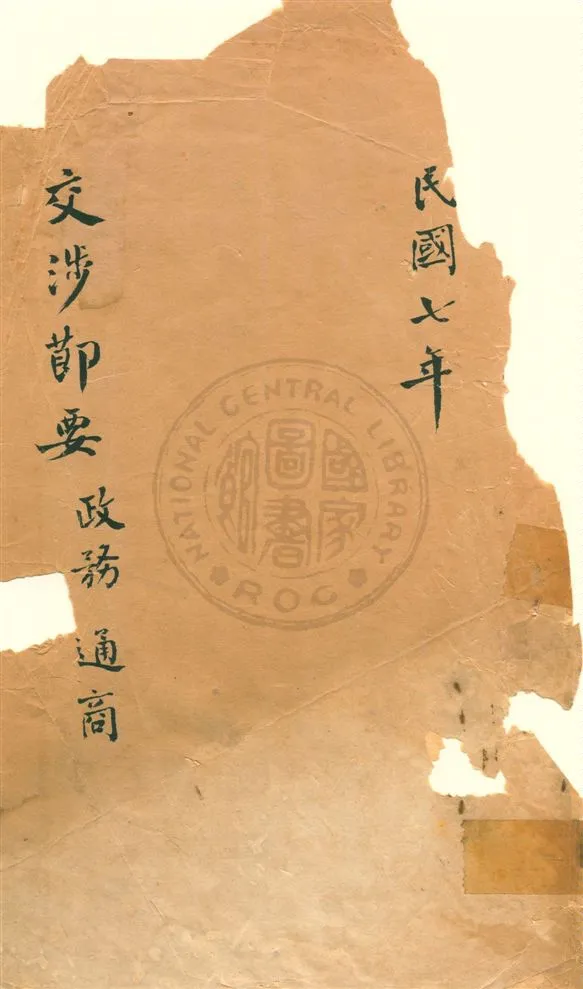 民國七年
交涉節要 政務 通商
NATIONAL CENTRAL LIBRARY
國家圖書館
ROC